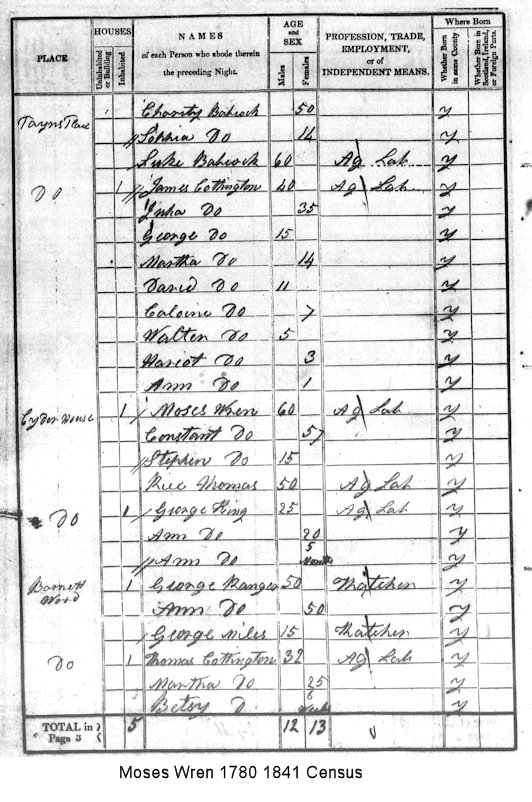 PLACE HOUSES Uninhabited or Building Inhabited NAMES of each Person who abode therein the preceding Night. AGE and SEX Males Females PROFESSION, TRADE, EMPLOYMENT, or of INDEPENDENT MEANS. Where Born Whether Born in same County Whether Born in Scotland, Ireland, or Foreign Parts.
Charity Babcock 50 y
Place Sophia Do 14 y
Luke Babcock 60 Ag Lab y
Do 1 James Cottington 40 Ag Lab y
Do 35 y
George Do 15 y
Martha Do 14 y
David Do 11 y
Caloine Do 7 y
Walter Do 5 y
Hariot Do 3 y
Ann Do 1 y
Cyder House 1 Moses Wren 60 Ag Lab y
Constant Do 57 y
Stephen Do 15 y
Rice Thomas 50 Ag Lab y
Do 1 George King 25 Ag Lab y
Ann Do 20 y
Ann Do 5 Months y
Barnett Wood 1 George Ranger 50 Thatcher y
Ann Do 50 y
George Miles 15 Thatcher y
Do 1 Thomas Cottington 32 Ag Lab y
Martha Do 25 y
Betsy D. 6 Weeks y
TOTAL in Page 3 5 12 13
Moses Wren 1780 1841 Census